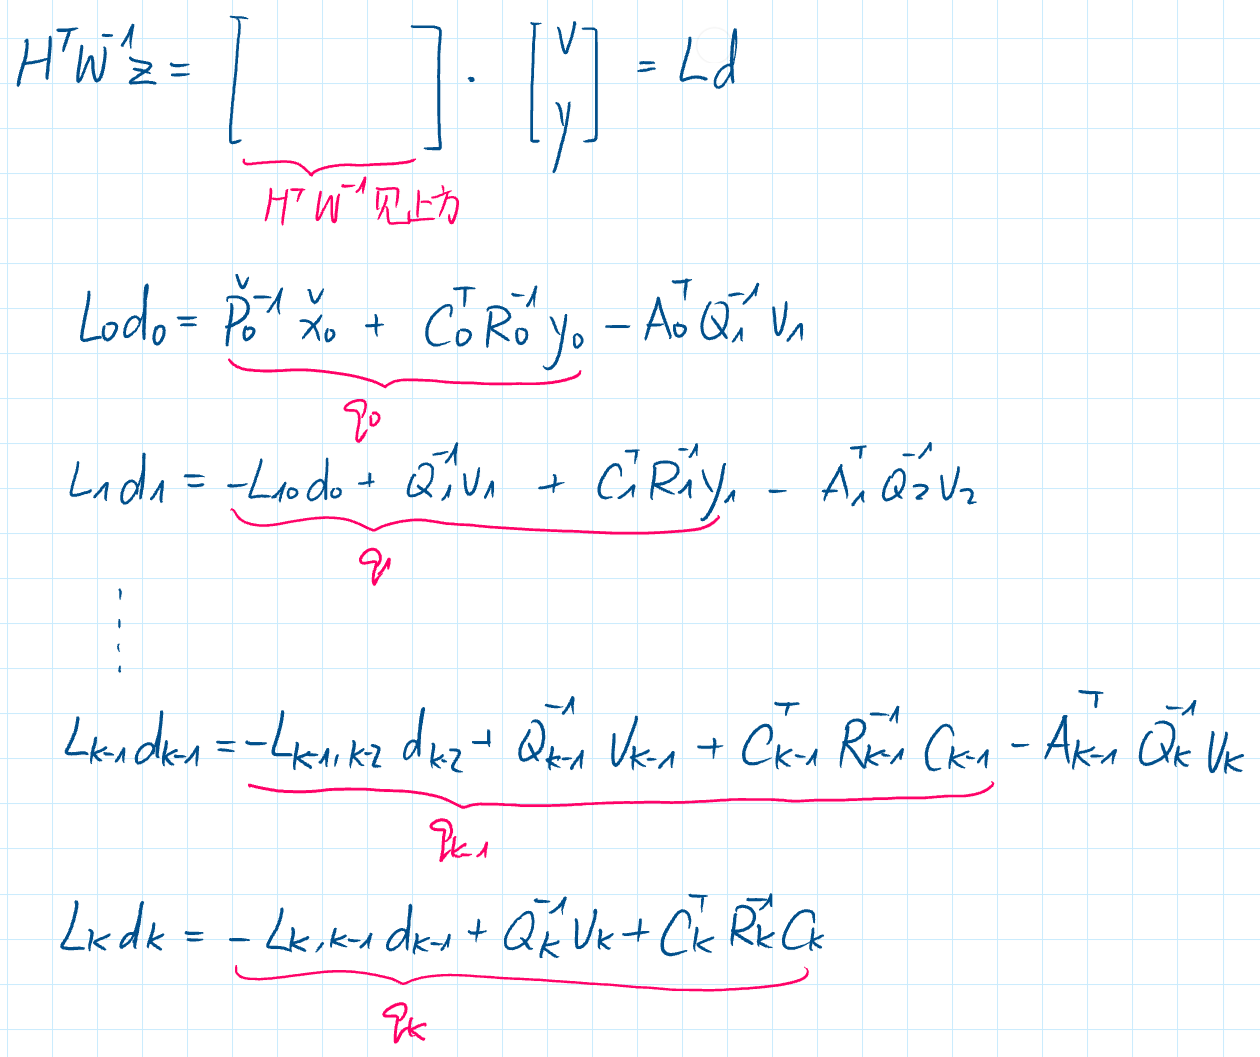 HᵀW⁻¹z = [ ] · [v y] = Ld
HᵀW⁻¹见上方
L₀d₀ = P̌₀⁻¹ x̌₀ + C₀ᵀ R₀⁻¹ y₀ − A₀ᵀ Q₁⁻¹ v₁
q₀
L₁d₁ = −L₁₀d₀ + Q₁⁻¹v₁ + C₁ᵀR₁⁻¹y₁ − A₁ᵀ Q₂⁻¹ v₂
q₁
L_{k-1} d_{k-1} = −L_{k-1,k-2} d_{k-2} + Q_{k-1}⁻¹ v_{k-1} + C_{k-1}ᵀ R_{k-1}⁻¹ C_{k-1} − A_{k-1}ᵀ Q_k⁻¹ v_k
q_{k-1}
L_k d_k = −L_{k,k-1} d_{k-1} + Q_k⁻¹ v_k + C_kᵀ R_k⁻¹ C_k
q_k